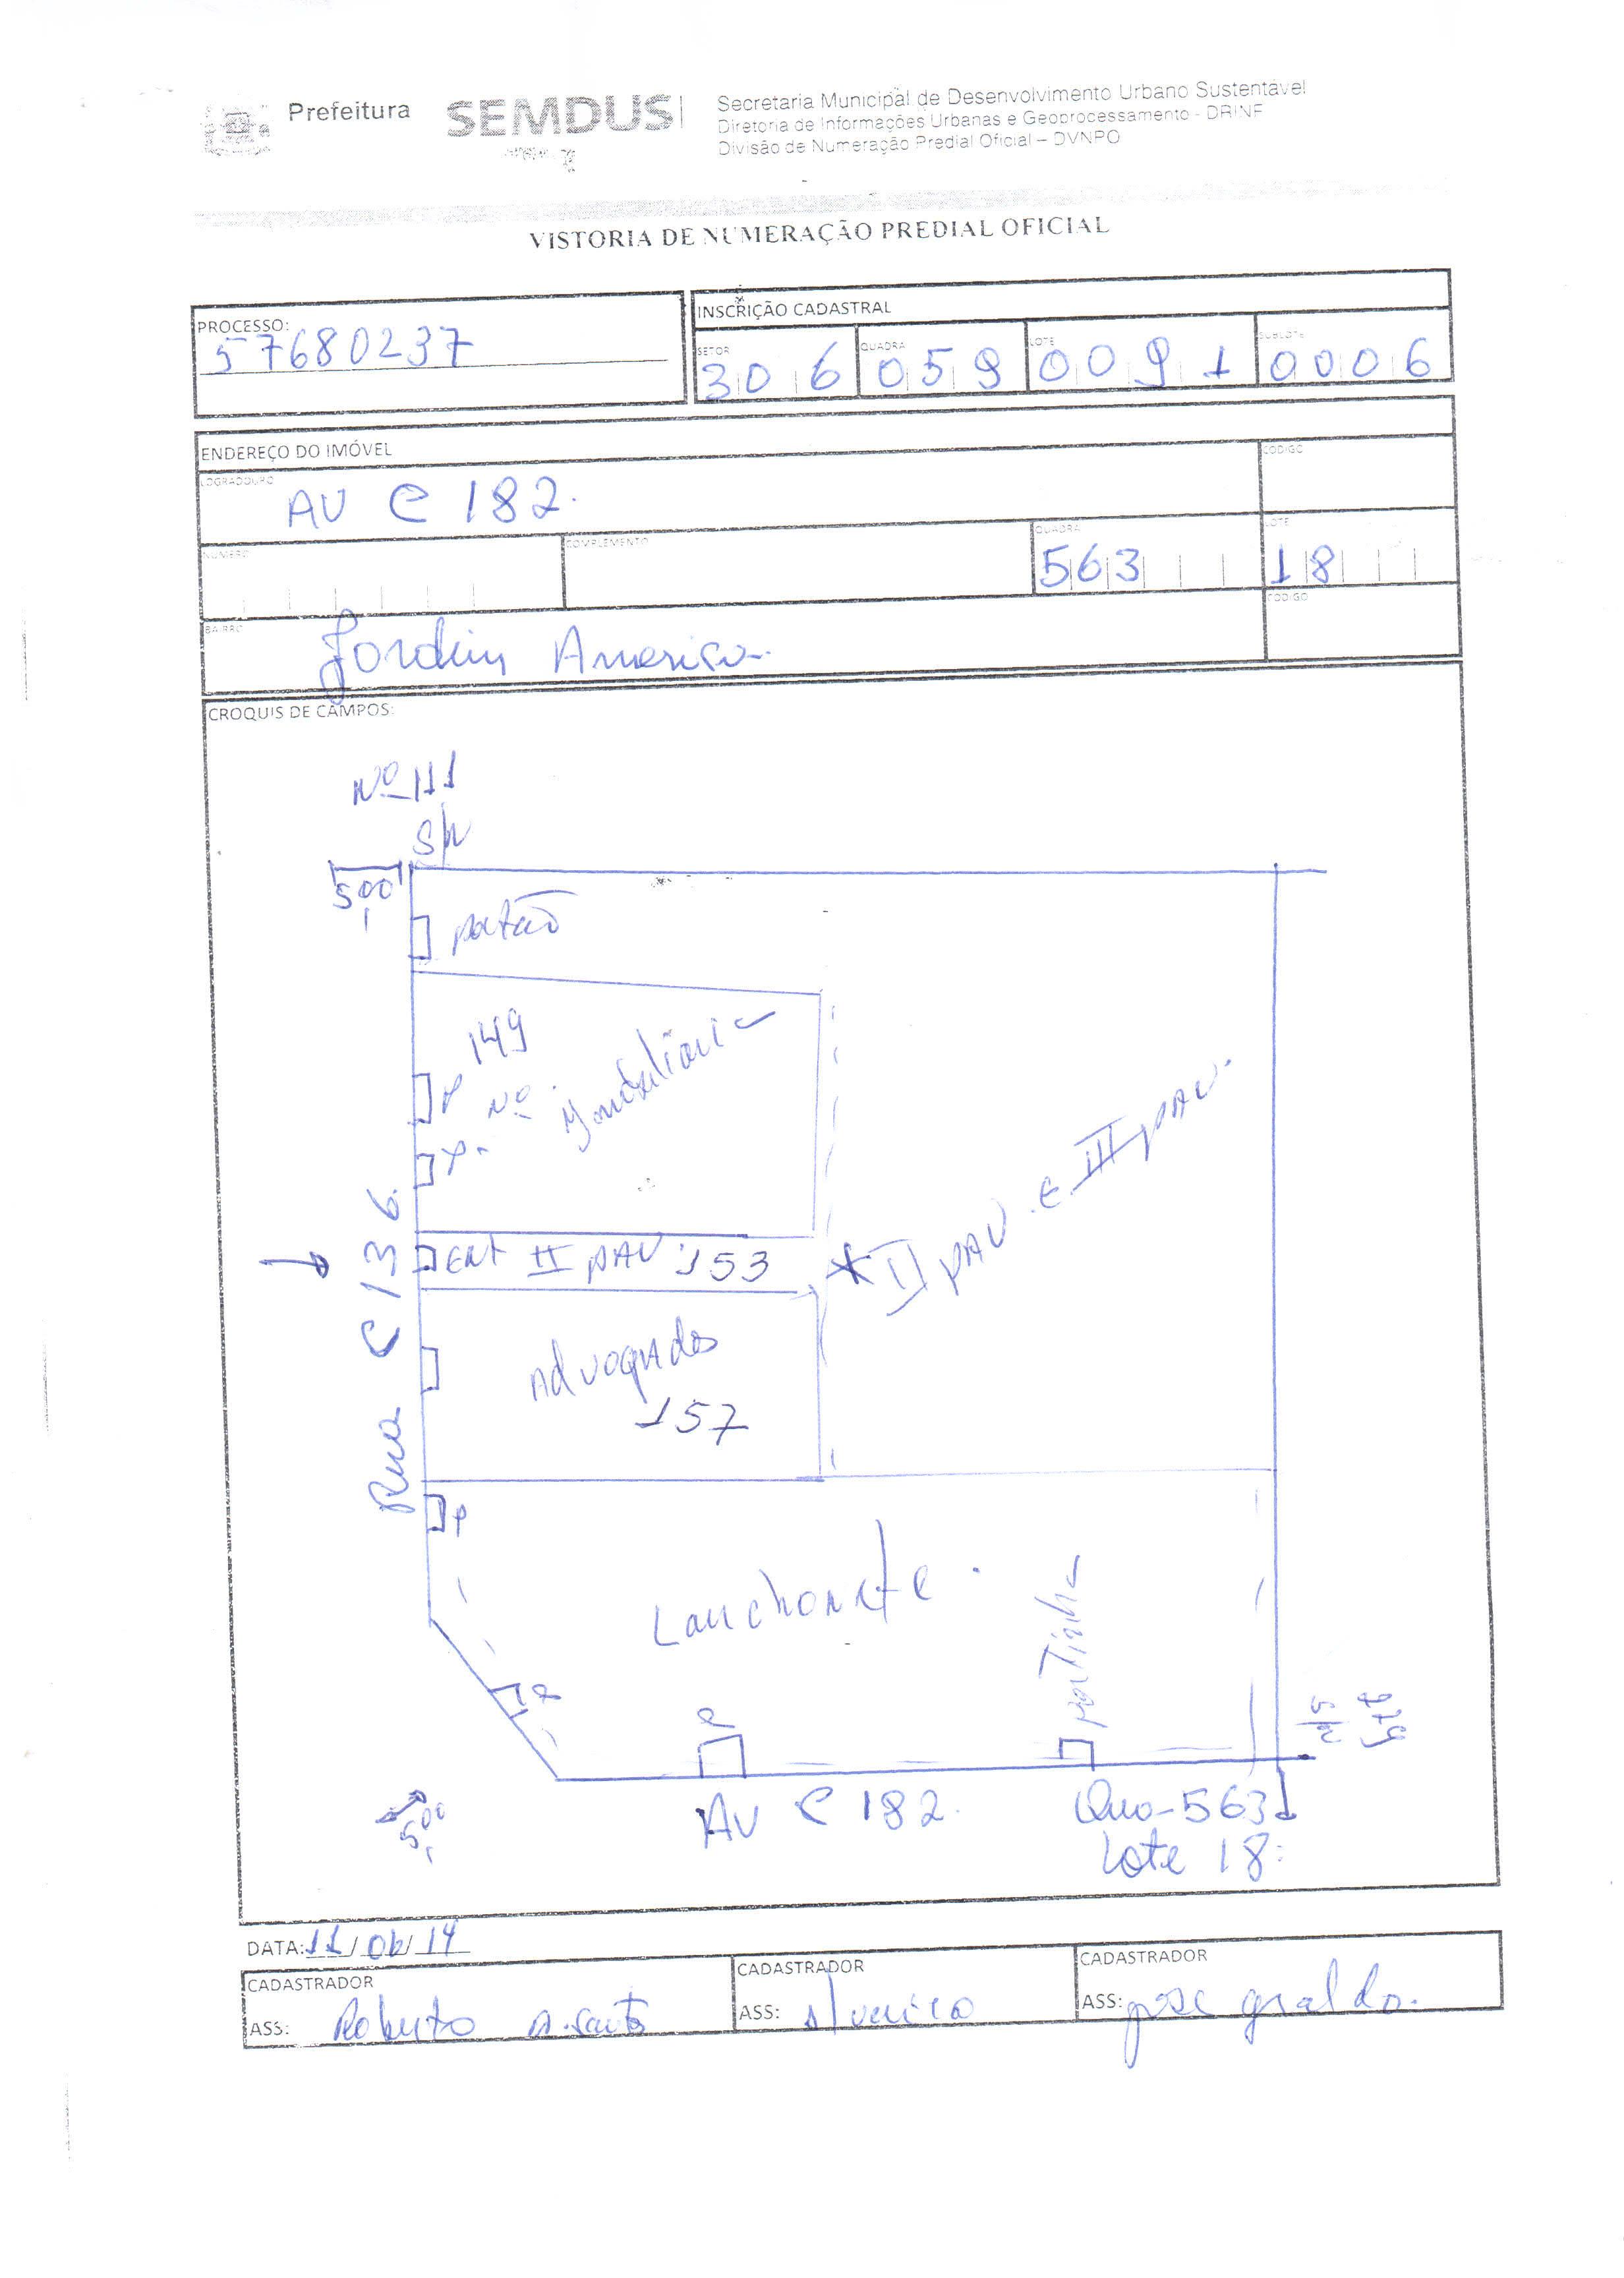 Prefeitura
SEMDUS
Secretaria Municipal de Desenvolvimento Urbano Sustentável
Diretoria de Informações Urbanas e Geoprocessamento - DRINF
Divisão de Numeração Predial Oficial – DVNPO
VISTORIA DE NUMERAÇÃO PREDIAL OFICIAL
PROCESSO:
57680237
INSCRIÇÃO CADASTRAL
SETOR QUADRA LOTE SUBLOTE
306 059 0091 0006
ENDEREÇO DO IMÓVEL
LOGRADOURO CODIGO
AV C 182.
NUMERO COMPLEMENTO QUADRA LOTE
563 18
BAIRRO CODIGO
Jordim America
CROQUIS DE CAMPOS:
Nº 111
S/N
500
portão
149
P Nº Imobiliaria
P.
Rua C 136.
ENT II PAV. 153
* II PAV. E III PAV.
Advogados
157
P
Lanchonete.
portinha
P
P
S/N
500
AV C 182.
Qua-563
Lote 18:
DATA: 11/06/14
CADASTRADOR CADASTRADOR CADASTRADOR
ASS: Roberto A. Santos ASS: ASS: jose geraldo.